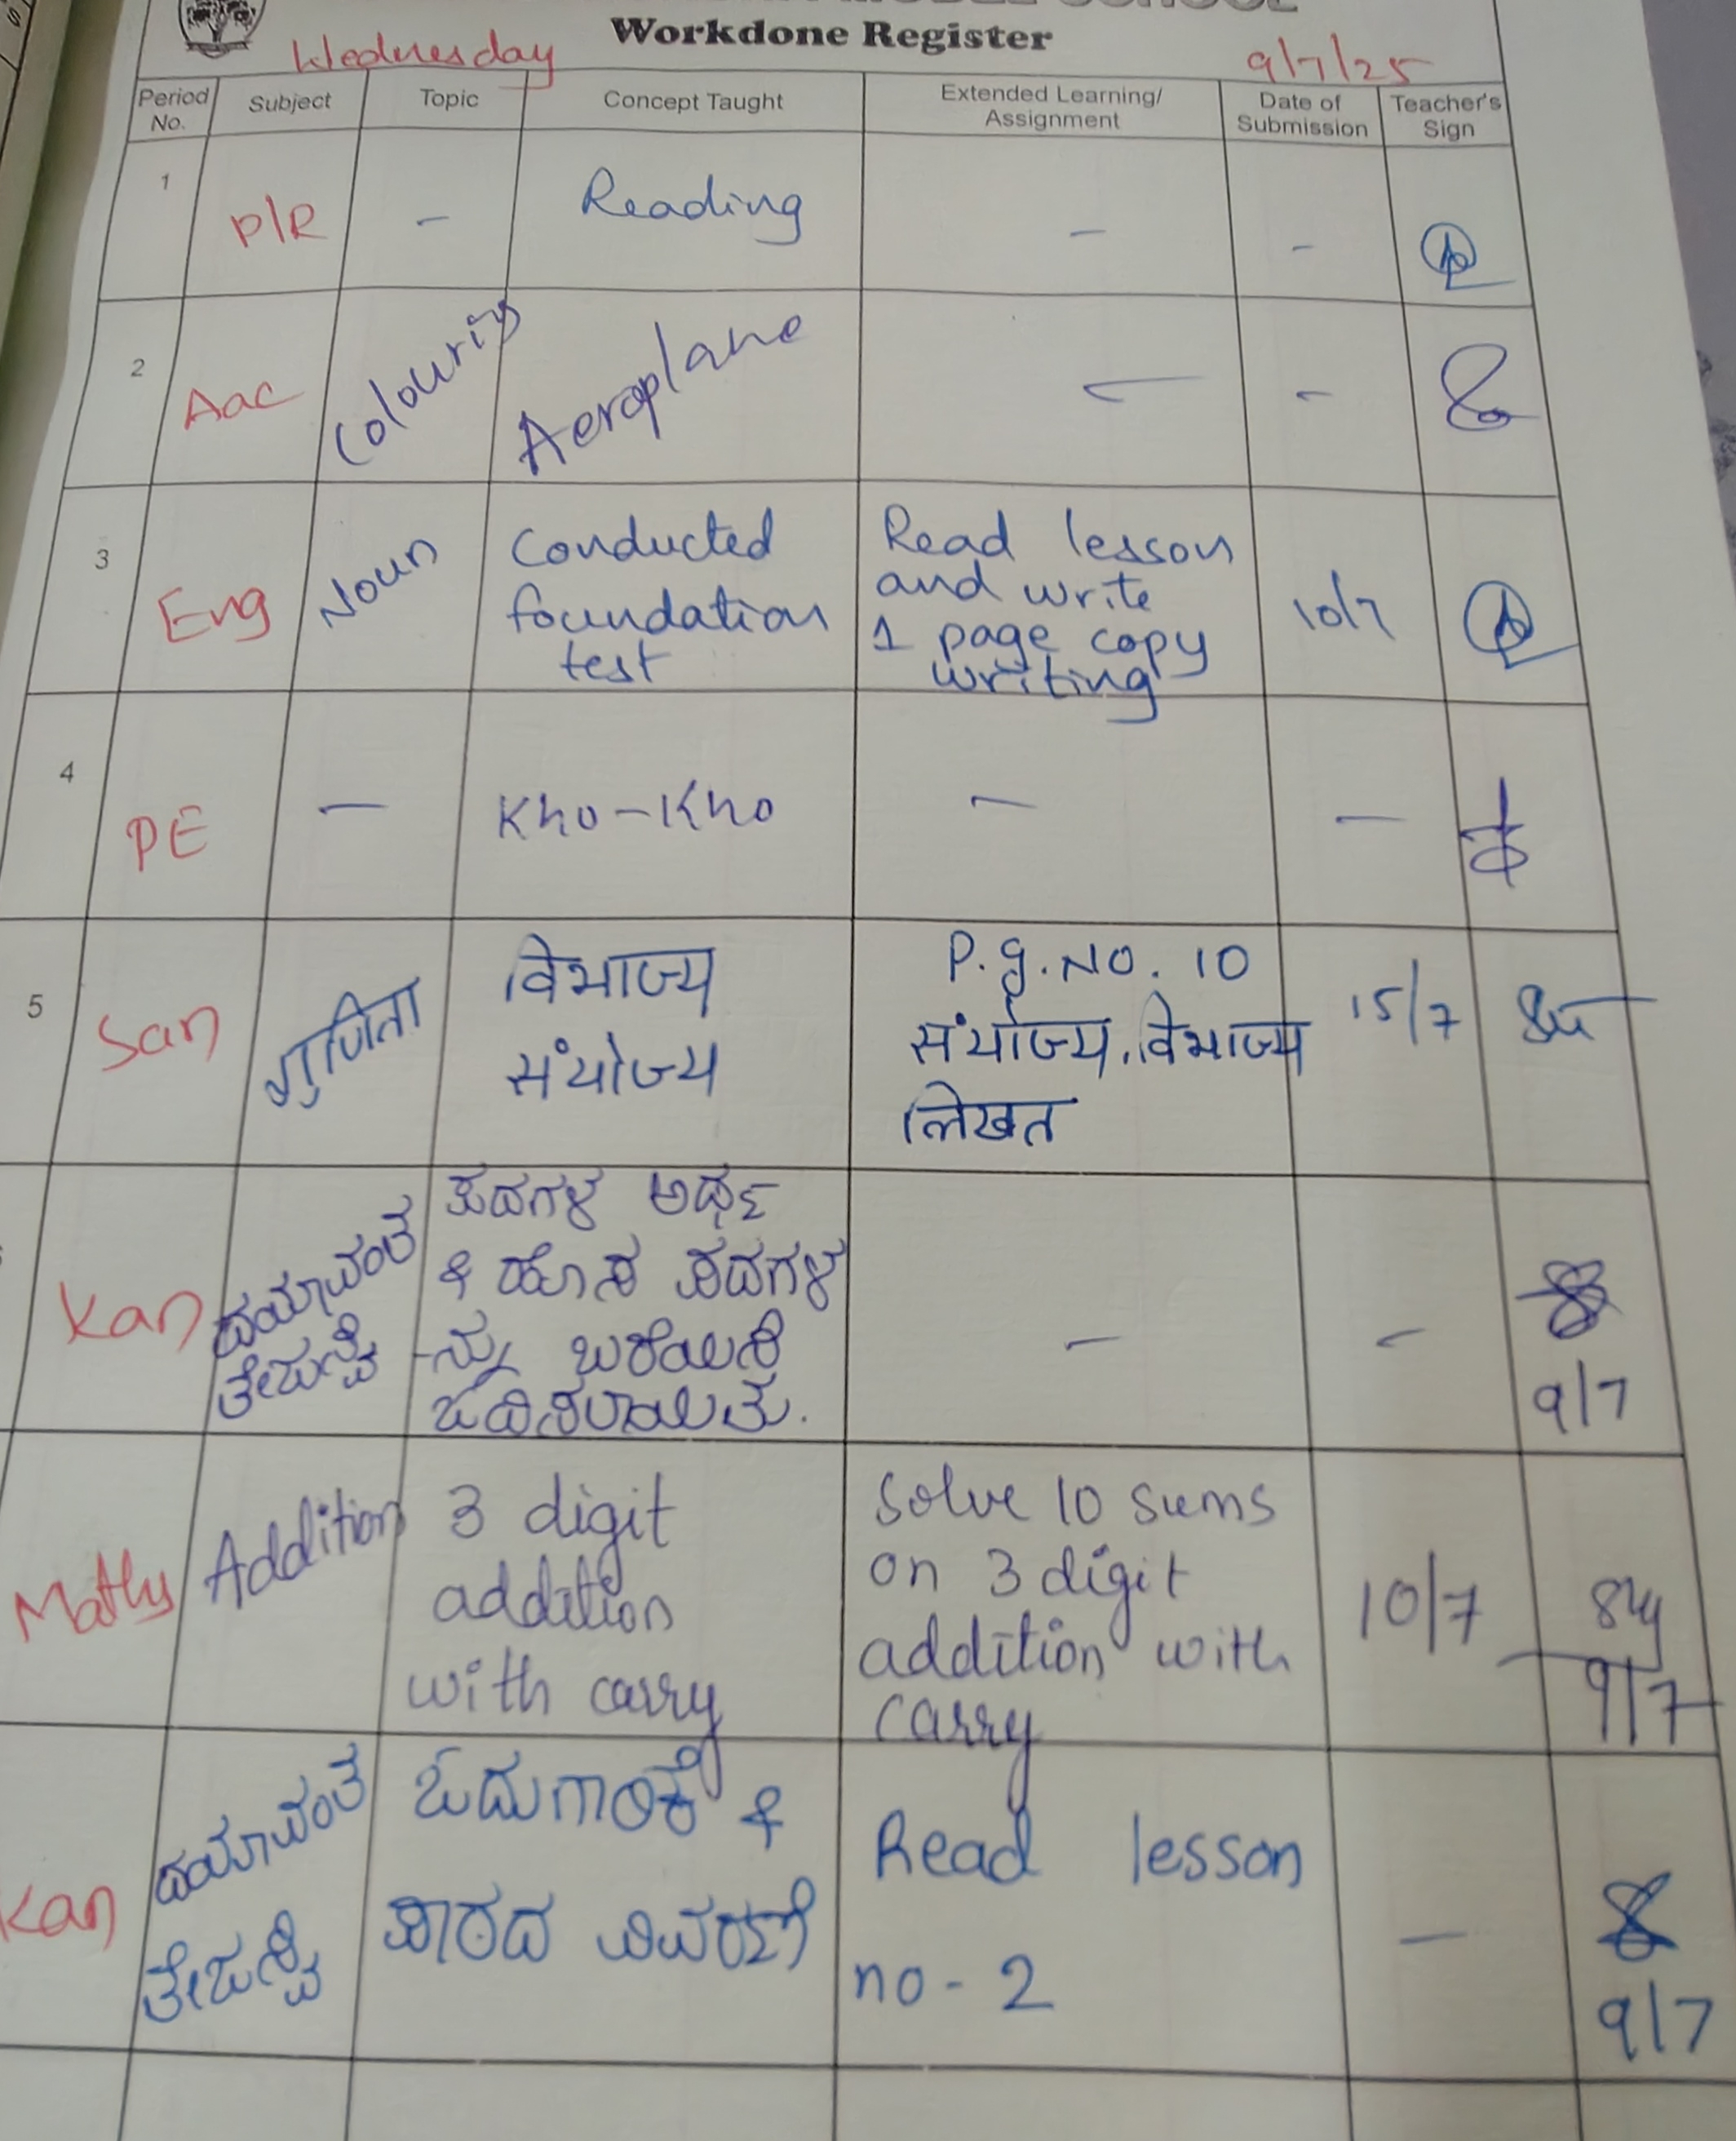 Workdone Register
Wednesday 9/7/25
Period No. Subject Topic Concept Taught Extended Learning/ Assignment Date of Submission Teacher's Sign
1 P/R - Reading - -
2 Aac Colouring Aeroplane - -
3 Eng Noun Conducted foundation test Read lesson and write 1 page copy writing 10/7
4 PE - Kho-Kho - -
5 San गुणिता विभाज्य संयोज्य P.g.No. 10 संयोज्य, विभाज्य लिखत 15/7
Kan ದಯಾವಂತ ತೇಜಸ್ವಿ ಪದಗಳ ಅರ್ಥ & ಹೊಸ ಪದಗಳ -ನ್ನು ಬರೆಯಿಸಿ ಓದಿಸಲಾಯಿತು. - - 9/7
Maths Addition 3 digit addition with carry Solve 10 sums on 3 digit addition with carry 10/7 9/7
Kan ದಯಾವಂತ ತೇಜಸ್ವಿ ಓದುಗಾರಿಕೆ & ಪಾಠದ ವಿವರಣೆ Read lesson no-2 - 9/7